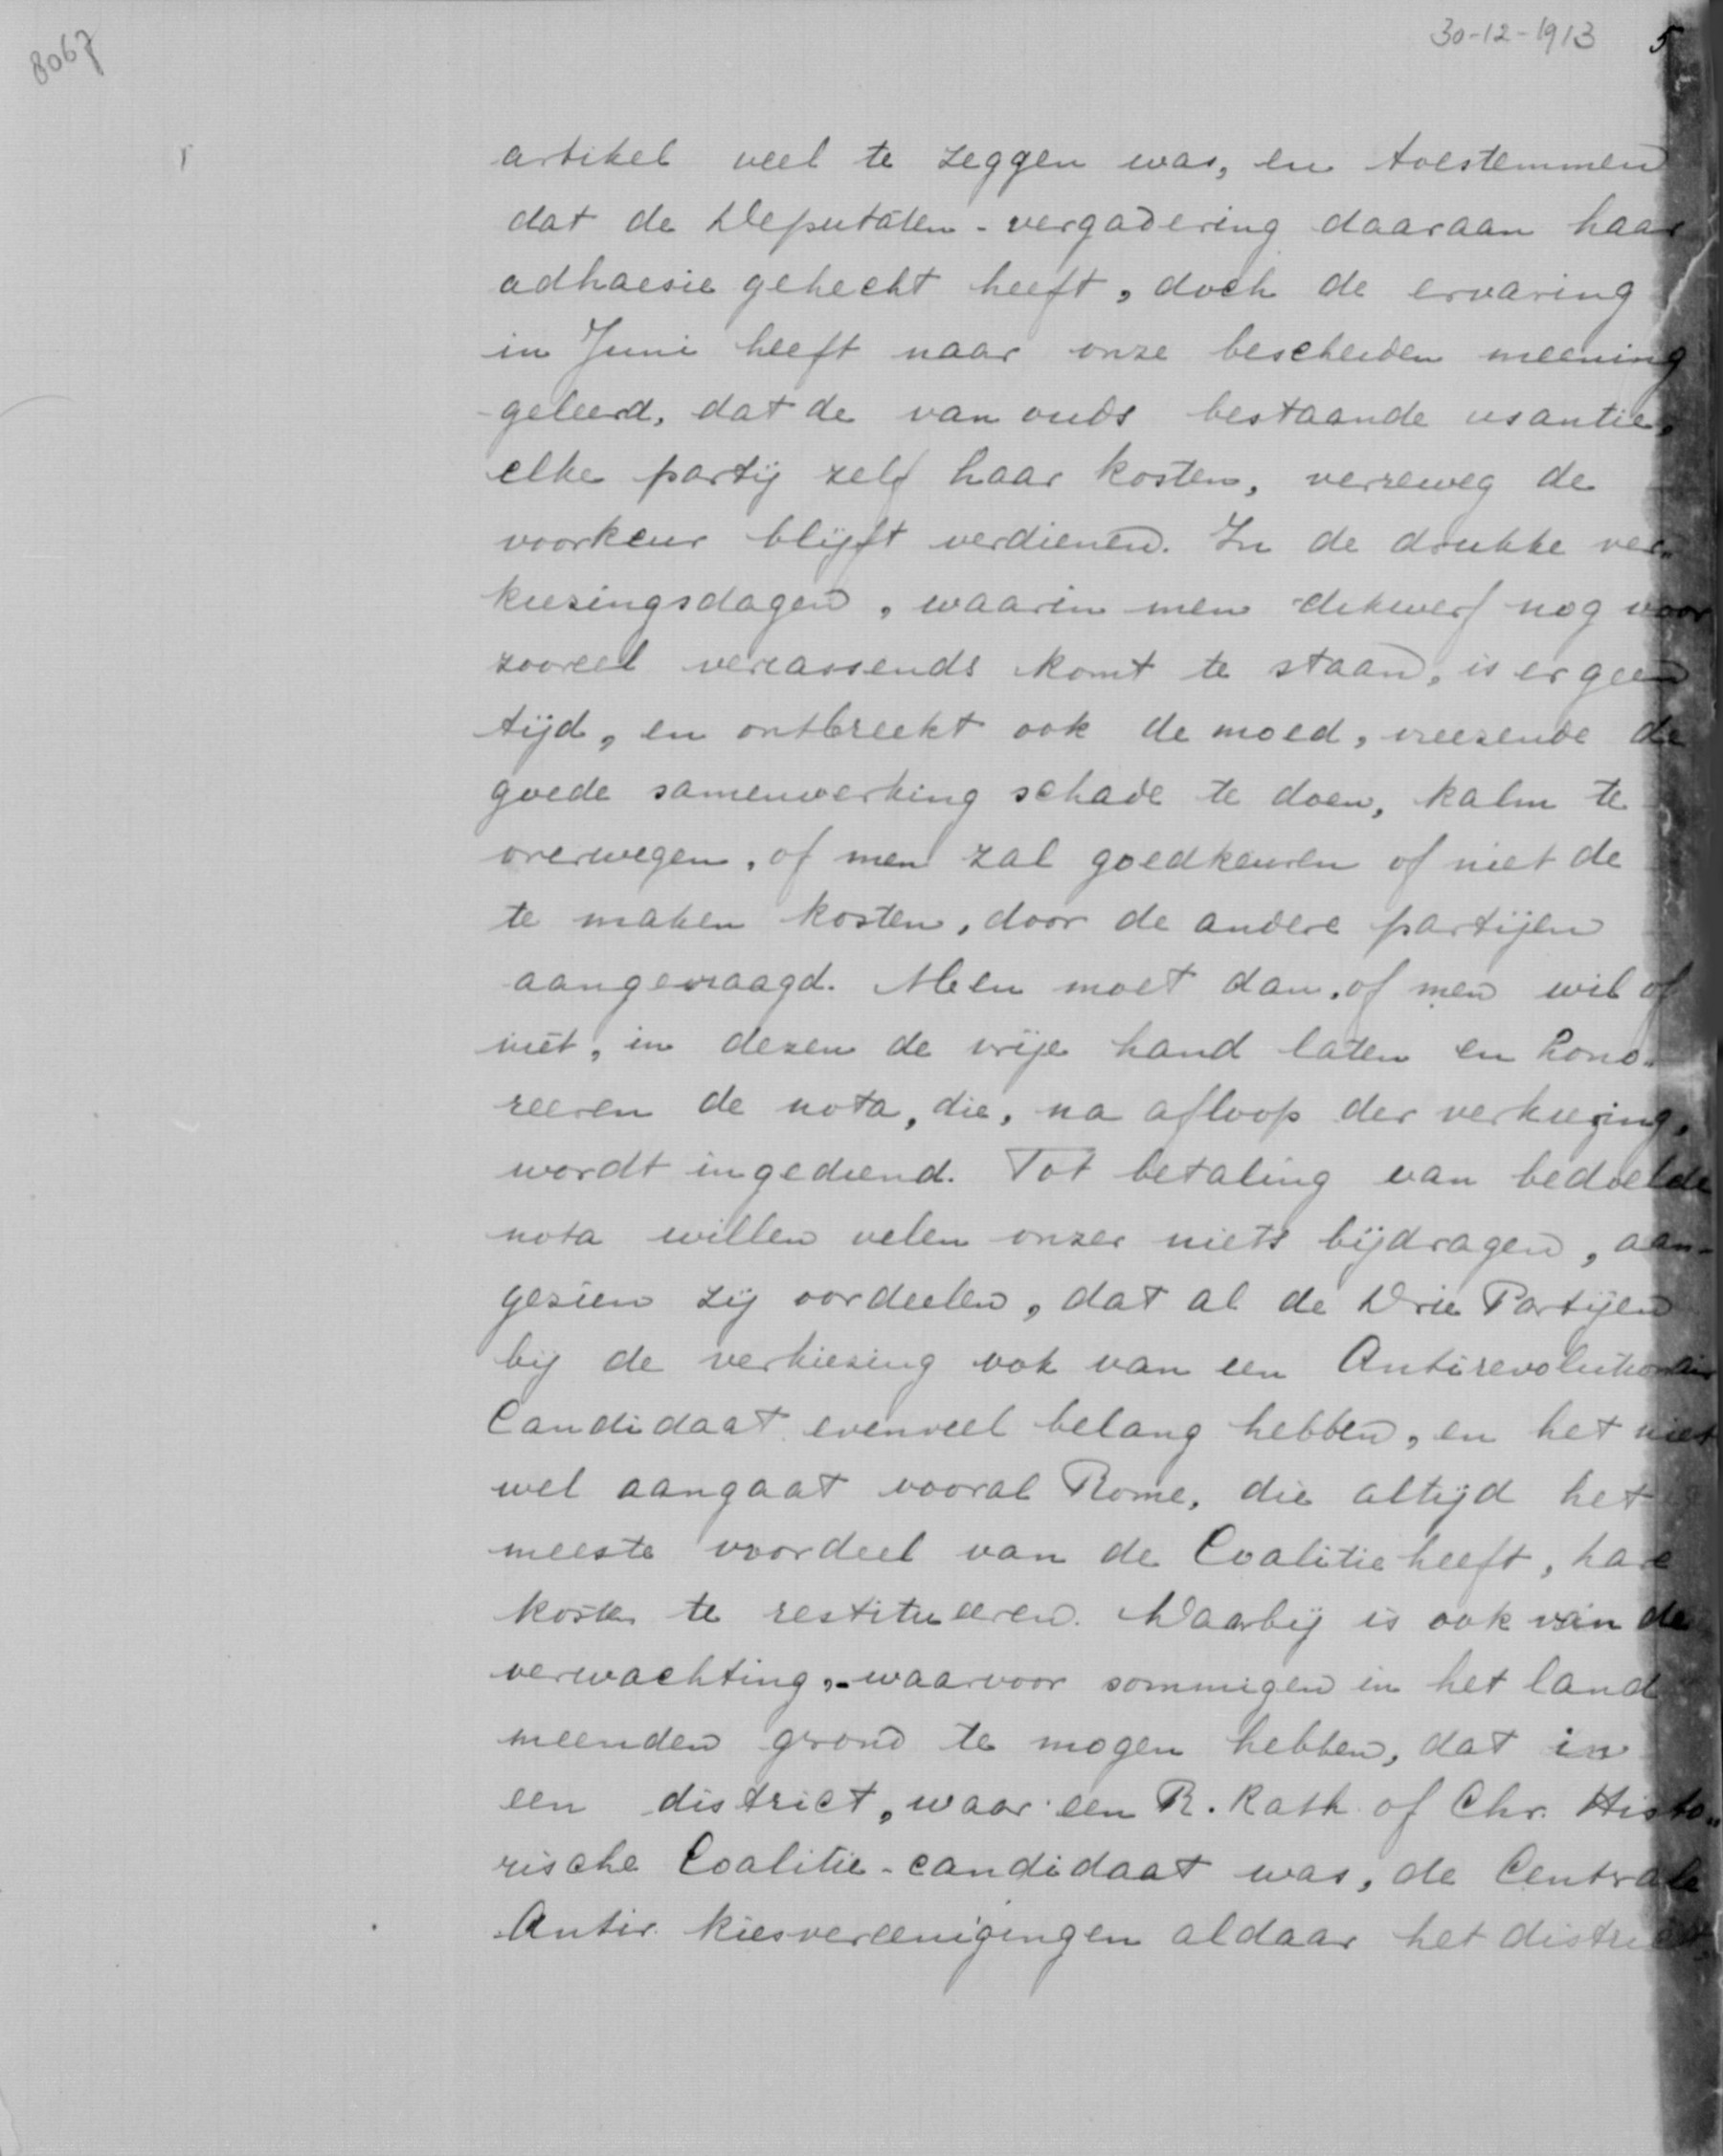 8067
30-12-1913 5
artikel veel te zeggen was, en toestemmen
dat de Deputaten-vergadering daaraan haar
adhaesie gehecht heeft, doch de ervaring
in Juni heeft naar onze bescheiden meening
geleerd, dat de van ouds bestaande usantie,
elke partij zelf haar kosten, verreweg de
voorkeur blijft verdienen. In de drukke ver-
kiezingsdagen, waarin men dikwerf nog voor
zooveel verrassends komt te staan, is er geen
tijd, en ontbreekt ook de moed, vreezende de
goede samenwerking schade te doen, kalm te
overwegen, of men zal goedkeuren of niet de
te maken kosten, door de andere partijen
aangevraagd. Men moet dan, of men wil of
niet, in dezen de vrije hand laten en hono-
reeren de nota, die, na afloop der verkiezing,
wordt ingediend. Tot betaling van bedoelde
nota willen velen onzer niets bijdragen, aan-
gezien zij oordeelen, dat al de Drie Partijen
bij de verkiezing ook van een Antirevolutionair
Candidaat evenveel belang hebben, en het niet
wel aangaat vooral Rome, die altijd het
meeste voordeel van de Coalitie heeft, hare
kosten te restitueeren. Daarbij is ook van de
verwachting, waarvoor sommigen in het land
meenden grond te mogen hebben, dat in
een district, waar een R. Kath. of Chr. Histo-
rische Coalitie-candidaat was, de Centrale
Antir. Kiesvereenigingen aldaar het district,